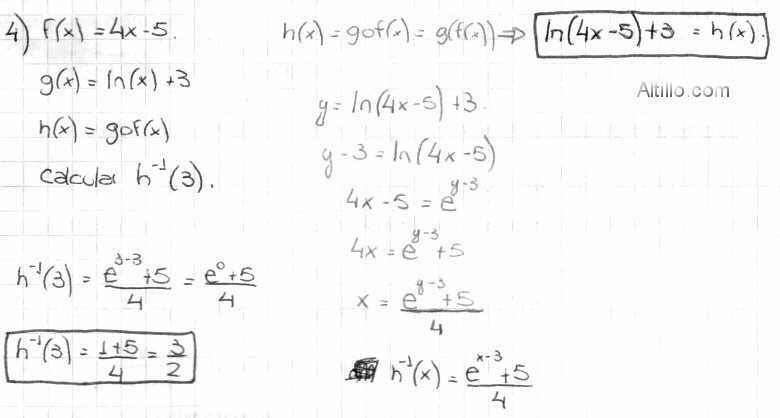 4) f(x) = 4x - 5.
g(x) = ln(x) + 3
h(x) = gof(x)
calcular h⁻¹(3).
h(x) = gof(x) = g(f(x)) ⇒ ln(4x-5)+3 = h(x).
Altillo.com
y = ln(4x-5) + 3.
y - 3 = ln(4x-5)
4x - 5 = e^(y-3)
4x = e^(y-3) + 5
x = (e^(y-3) + 5)/4
h⁻¹(x) = (e^(x-3) + 5)/4
h⁻¹(3) = (e^(3-3) + 5)/4 = (e^0 + 5)/4
h⁻¹(3) = (1+5)/4 = 3/2